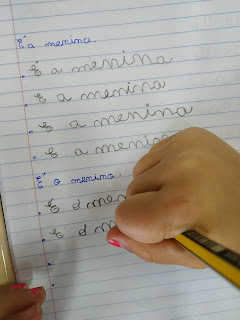 É a menina.
É a menina
É a menina
É a menina
É a menina
É o menino.
É o men
É o m